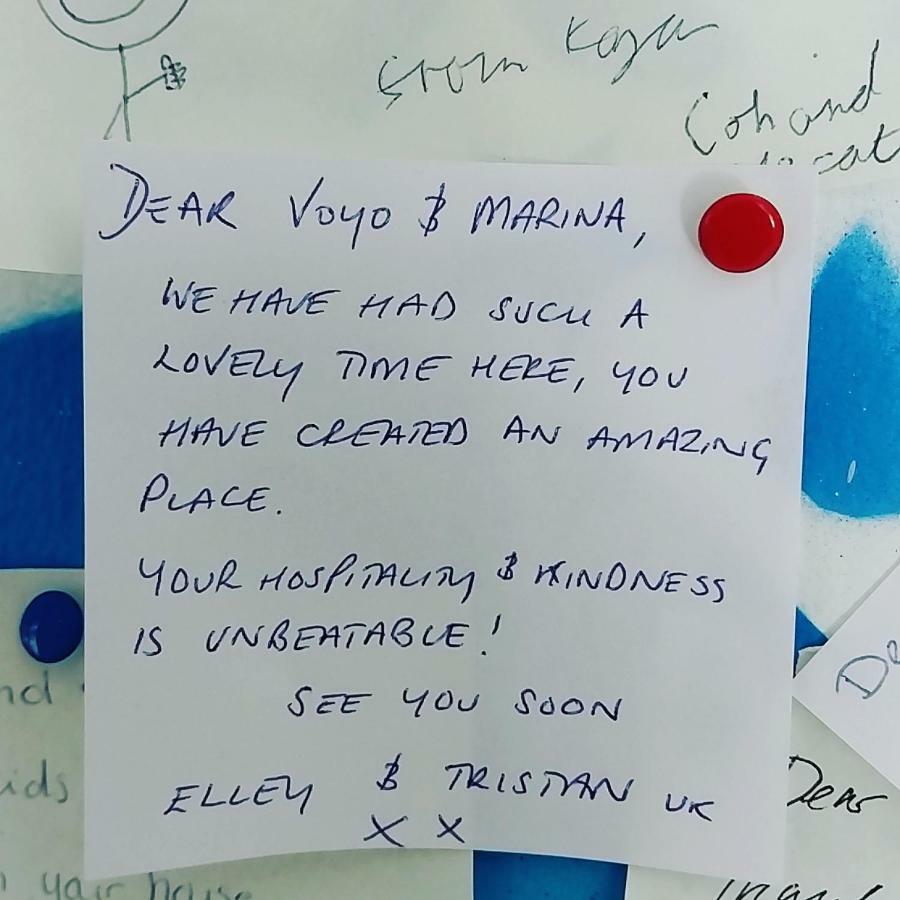 from Kaya
and
DEAR VOYO & MARINA,
WE HAVE HAD SUCH A
LOVELY TIME HERE, YOU
HAVE CREATED AN AMAZING
PLACE.
YOUR HOSPITALITY & KINDNESS
IS UNBEATABLE!
SEE YOU SOON
ELLEY & TRISTAN UK
X X
Dear
house